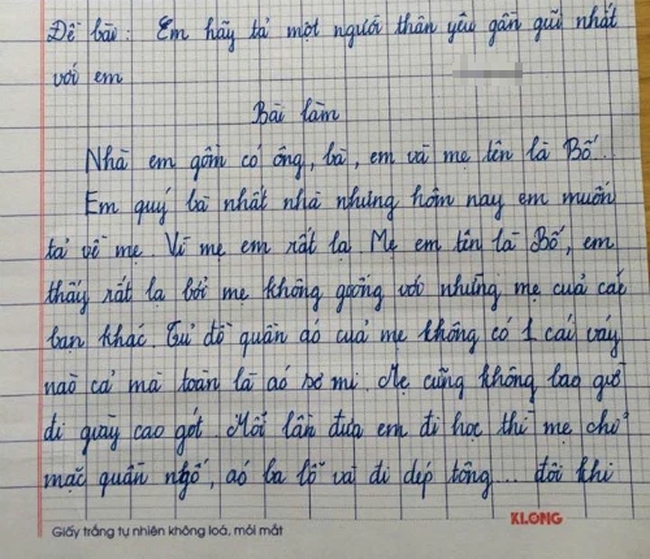 Đề bài: Em hãy tả một người thân yêu gần gũi nhất
với em
Bài làm
Nhà em gồm có ông, bà, em và mẹ tên là Bố.
Em quý bà nhất nhà nhưng hôm nay em muốn
tả về mẹ. Vì mẹ em rất lạ. Mẹ em tên là Bố, em
thấy rất lạ bởi mẹ không giống với những mẹ cuả các
bạn khác. Tủ đồ quần aó cuả mẹ không có 1 cái váy
naò cả mà toàn là aó sơ mi. Mẹ cũng không bao giờ
đi giày cao gót. Mỗi lần đưa em đi học thì mẹ chỉ
mặc quần ngố, aó ba lỗ và đi dép tông... đôi khi
KLONG
Giấy trắng tự nhiên không loá, mỏi mắt